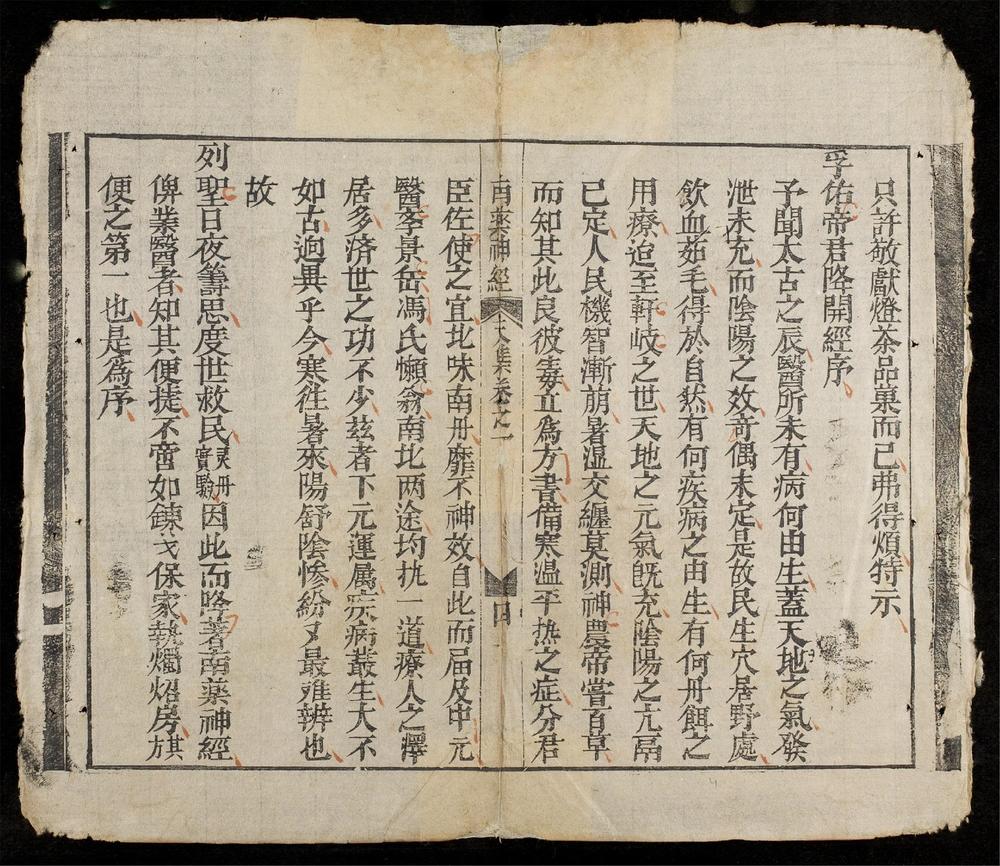 只許敬獻燈茶品菓而已弗得煩特示
孚佑帝君降開經序
予聞太古之辰醫所未有病何由生蓋天地之氣發
泄未充而陰陽之效奇偶未定是故民生穴居野處
飲血茹毛得於自然有何疾病之由生有何丹餌之
用療迨至軒岐之世天地之元氣旣充陰陽之亢鬲
已定人民機智漸萠暑湿交纏莫測神農帝嘗百草
而知其此良彼毒立為方書備寒温平热之症分君
南薬神經 天集卷之一 四
臣佐使之宜北味南丹靡不神效自此而届及中元
醫李景岳馮氏懶翁南北两途均扰一道療人之澤
居多済世之功不少玆者下元運属疾病叢生大不
如古逈異乎今寒徃暑來陽舒陰惨紛ヌ最难辨也
故
列聖日夜筹思度世救民灵丹實驗因此而降著南薬神經
俾業醫者知其便捷不啻如鎮戈保家執燭炤房其方
便之第一也是為序